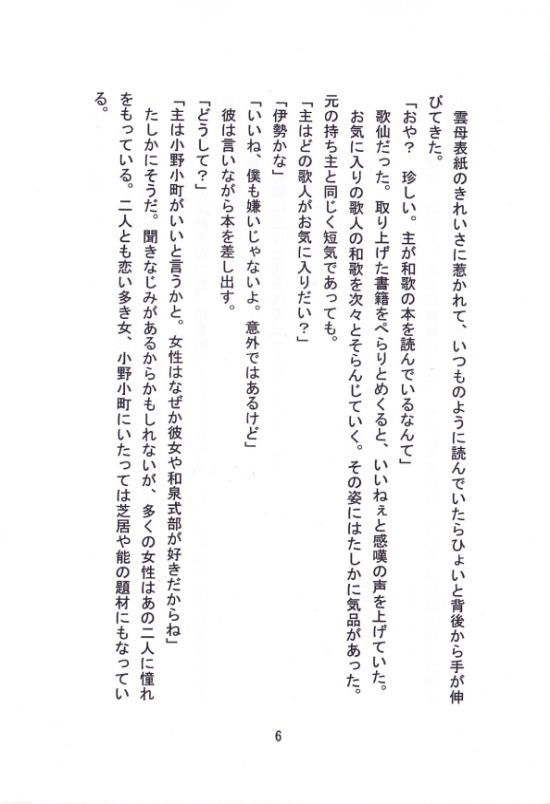 雲母表紙のきれいさに惹かれて、いつものように読んでいたらひょいと背後から手が伸
びてきた。
「おや？　珍しい。主が和歌の本を読んでいるなんて」
　歌仙だった。取り上げた書籍をぺらりとめくると、いいねぇと感嘆の声を上げていた。
　お気に入りの歌人の和歌を次々とそらんじていく。その姿にはたしかに気品があった。
元の持ち主と同じく短気であっても。
「主はどの歌人がお気に入りだい？」
「伊勢かな」
「いいね、僕も嫌いじゃないよ。意外ではあるけど」
　彼は言いながら本を差し出す。
「どうして？」
「主は小野小町がいいと言うかと。女性はなぜか彼女や和泉式部が好きだからね」
　たしかにそうだ。聞きなじみがあるからかもしれないが、多くの女性はあの二人に憧れ
をもっている。二人とも恋い多き女、小野小町にいたっては芝居や能の題材にもなってい
る。
6